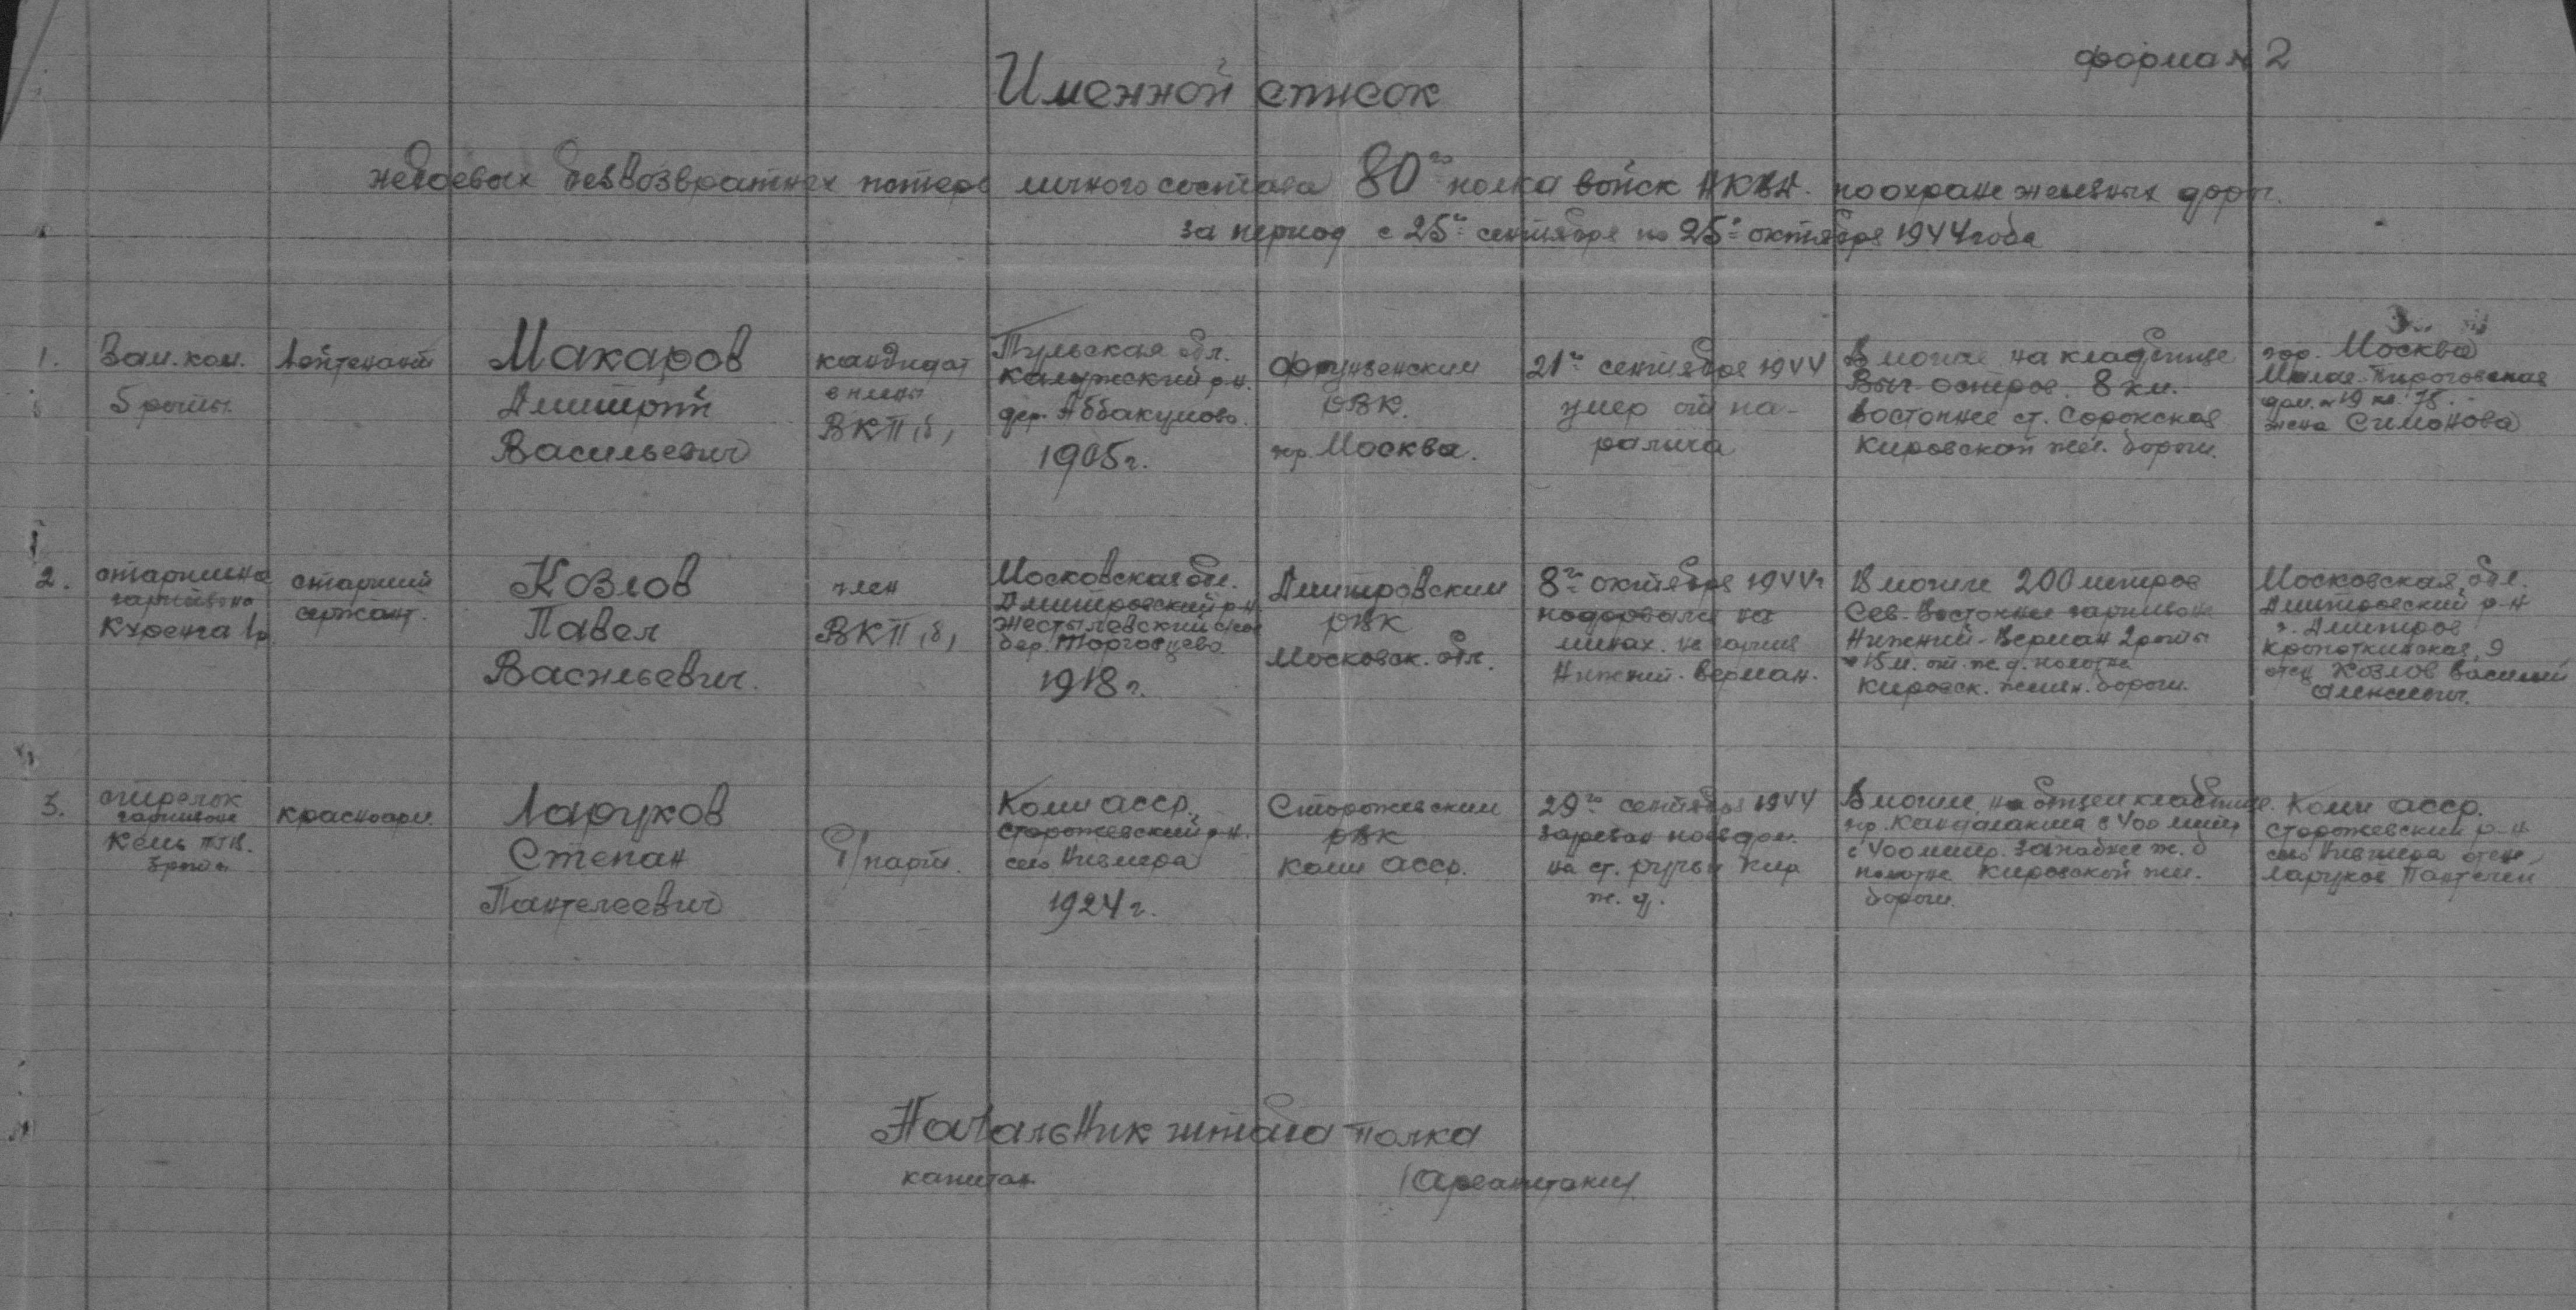 форма № 2
Именной список
небоевых безвозвратных потерь личного состава 80го полка войск НКВД по охране железных дорог.
за период с 25го сентября по 25е октября 1944 года
1.
Зам. ком.
5 роты.
Лейтенант
Макаров
Дмитрий
Васильевич
кандидат
в члены
ВКП(б)
Тульская обл.
Калужский р-н.
дер. Аббакумово.
1905 г.
Фрунзенским
РВК.
гор. Москва.
21го сентября 1944
умер от па-
ралича
В могиле на кладбище
Выг остров. 8 км.
восточнее ст. Сорокская
Кировской жел. дороги.
гор. Москва
Малая-Пироговская
дом. № 19 кв. 75.
жена Симонова
2.
старшина
гарнизона
Куренга 1р.
старший
сержант.
Козлов
Павел
Васильевич.
член
ВКП(б)
Московская обл.
Дмитровский р-н.
Жестылевский с/сов
дер. Торговцево
1918 г.
Дмитровским
РВК
Московск. обл.
8го октября 1944 г
подорвался на
минах. на гарниз
Нижний-Верман.
В могиле 200 метров
Сев-Восточнее гарнизона
Нижний-Верман 2 роты
15 м. от ж.д. полотна
Кировск. желез. дороги.
Московская обл.
Дмитровский р-н
г. Дмитров
Кропоткинская, 9
отец Козлов Василий
3.
стрелок
гарнизона
Кемь
красноарм.
Ларуков
Степан
Пантелеевич
б/парт.
Коми АССР.
Сторожевский р-н.
село Нившера
1924 г.
Сторожевским
РВК
Коми АССР.
29го сентября 1944
зарезан поездом.
на ст. ручьи Кир
ж. д.
В могиле на общем кладбище.
гор. Кандалакша с 400 метр
с 400 метр. западнее ж. д
полотна Кировской жел.
дороги.
Коми АССР.
Сторожевский р-н
село Нившера отец
Ларуков Пантелей
Начальник штаба полка
капитан